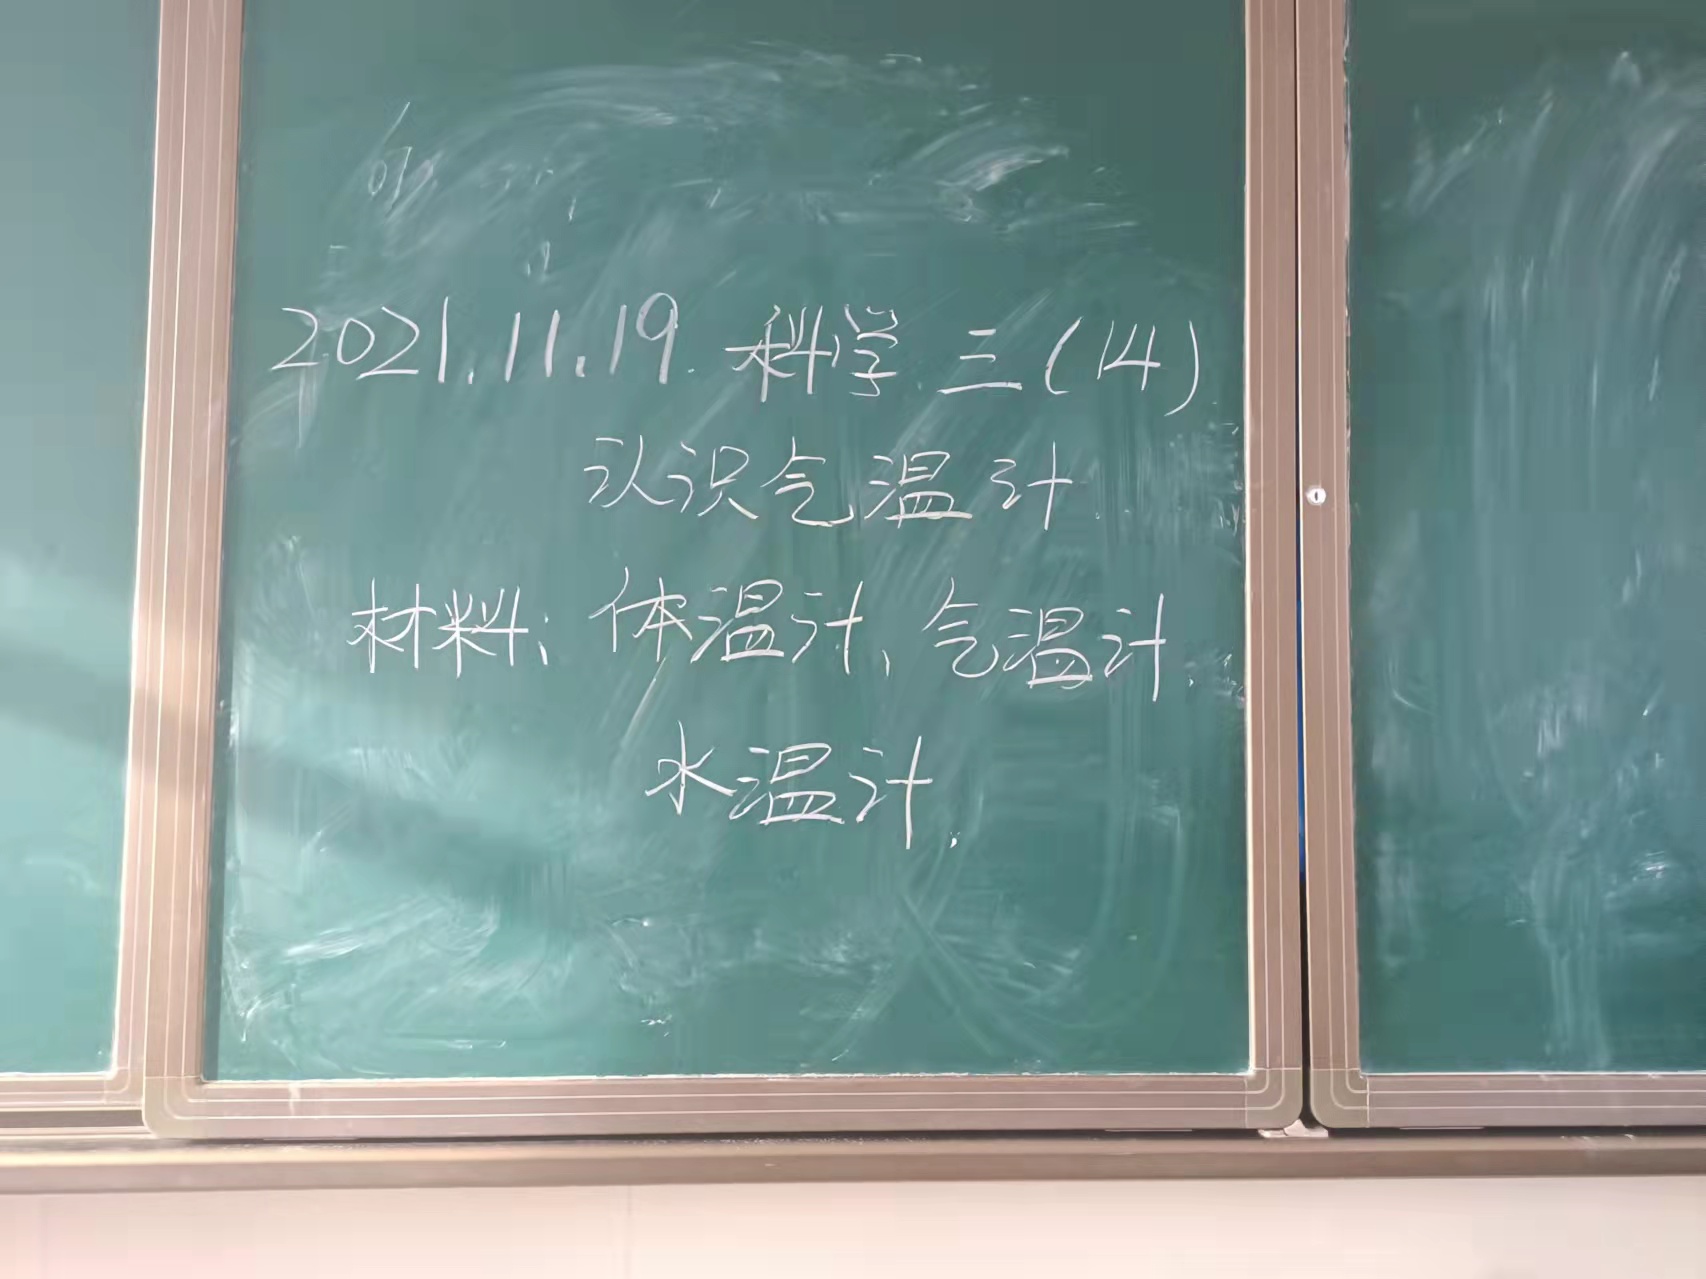 2021.11.19. 科学 三(14)
认识气温计
材料: 体温计、气温计、
水温计.